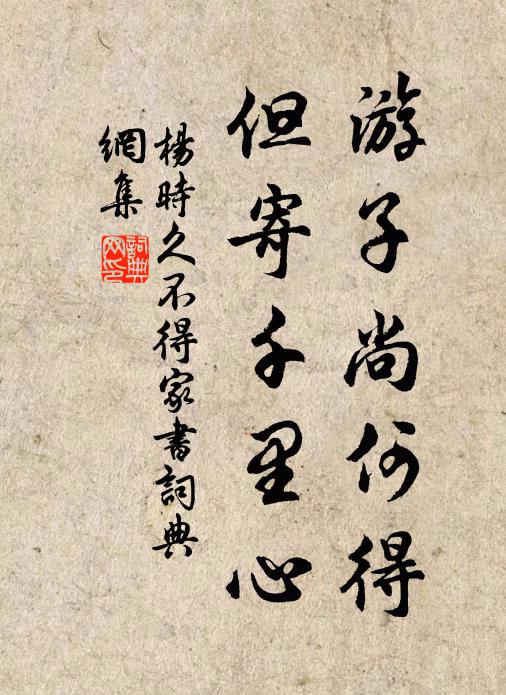 游子尚何得
但寄千里心
楊時久不得家書詞典
網集
詞典
网印